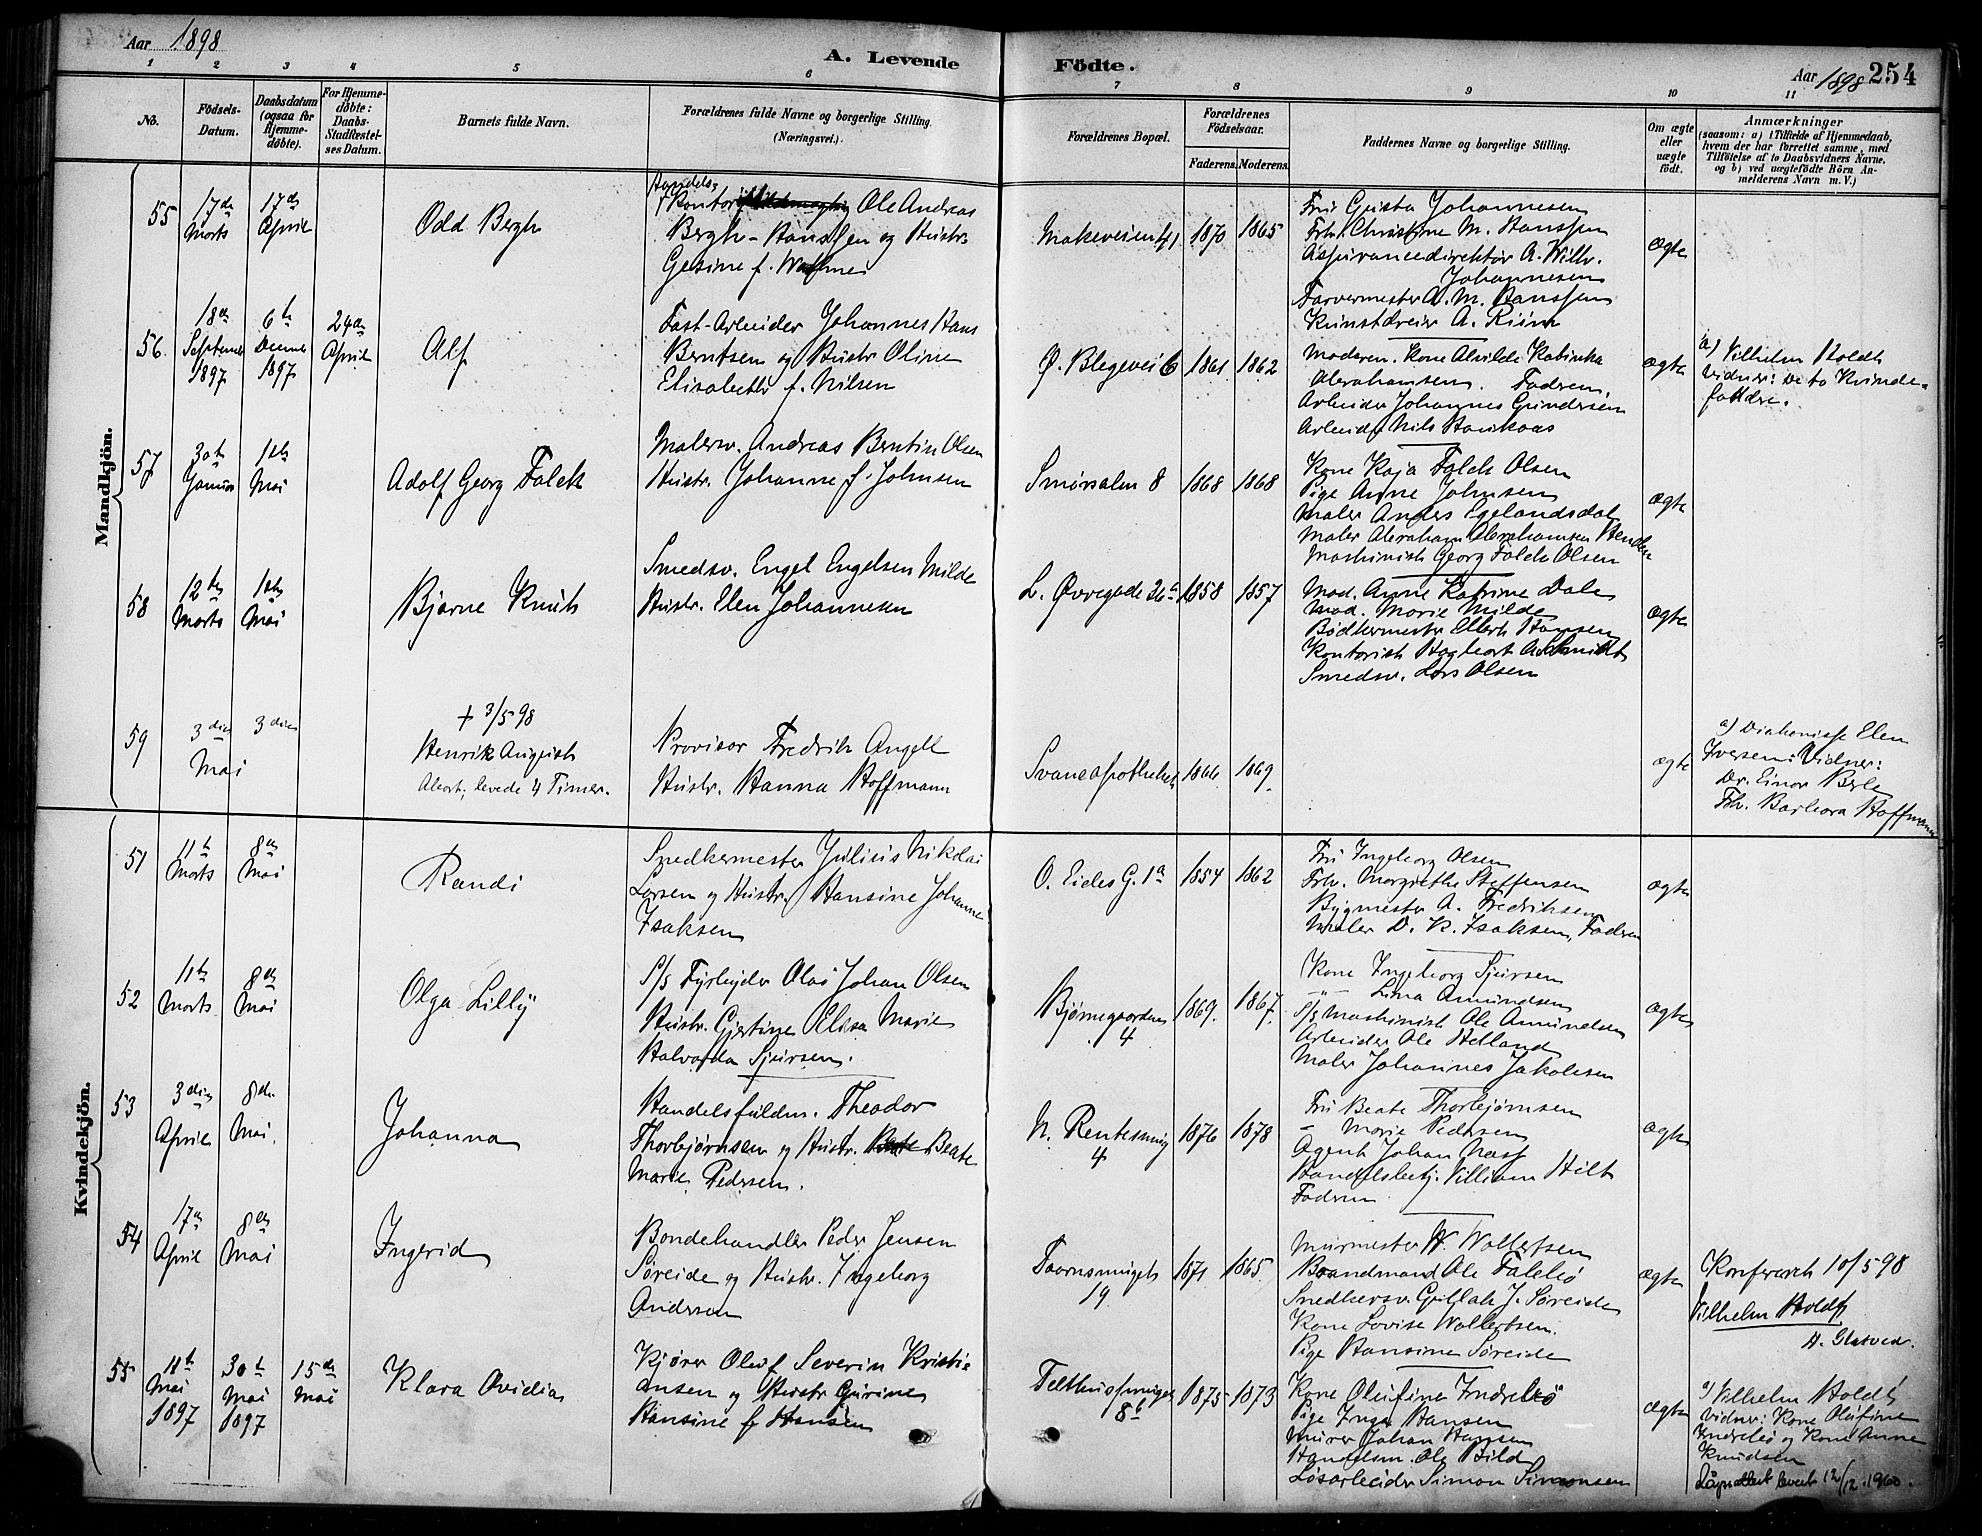 Aar 1898
A. Levende
Födte.
Aar 1898 254
1 2 3 4 5 6 7 8 9 10 11
No.
Födsels-
Datum.
Daabsdatum
(ogsaa for
Hjemme-
döbte).
For Hjemme-
döbte:
Daabs-
Stadfæstel-
ses Datum.
Barnets fulde Navn.
Forældrenes fulde Navne og borgerlige Stilling.
(Næringsvei.)
Forældrenes Bopæl.
Forældrenes
Födselsaar.
Faderens. Moderens.
Faddernes Navne og borgerlige Stilling.
Om ægte
eller
uægte
födt.
Anmærkninger
(saasom: a) i Tilfælde af Hjemmedaab,
hvem der har forrettet samme, med
Tilföielse af to Daabsvidners Navne.
og b) ved uægtefödte Börn An-
melderens Navn m. V.)
Mandkjön.
55
17de
Marts
17de
April
Odd Bergh
Ole Andreas
Bergh-Hanssen og Hustr.
Gesine f.
Makeveien
1870
1865
Fru Gusta Johannesen
Frk. Christine M. Hanssen
Assurancedirektør A. Wilh.
Johannesen
Farvermester A. M. Hanssen
Kunstdreier A. Riim
ægte
56.
18de
Septembr
1897
6te
Decembr
1897
24de
April
Alf
Fast-Arbeider Johannes Hans
Berntsen og Hustr. Oline
Elisabeth f. Nilsen
Ø. Blegevei 6
1861
1862
Moderen. Kone Alvilde Kabinka
Abrahamsen. Faderen,
Arbeider Johannes Gundersen
Arbeider Nils Haukaas
ægte
a) Vilhelm Holdt
Vidner: De to Kvinde-
faddre.
57
30te
Januar
1ste
Mai
Adolf Georg Falck
Malersv. Andreas Berntin Olsen
Hustr. Johanne f. Johnsen
Smørsalm 8
1868
1868
Kone Kaja Falck Olsen
Pige Anne Johnsen
Maler Anders Egelandsdal
Maler Abraham Abrahamsen Henden
Maskinist Georg Falck Olsen
ægte
58
12te
Marts
1ste
Mai
Bjarne Knut
Smedsv. Engel Engelsen Milde
Hustr. Elen Johannesen
L. Øvregade 26a
1858
1857
Mad. Anne Katrine Dale
Mad. Marie Milde
Bødkermester Ellert Hansen
Kontorist Hagbart A. Schmidt
Smedsv. Lars Olsen
ægte
59
3die
Mai
3die
+ 3/5 98
Henrik August
Abort, levede 4 Timer.
Provisor Fredrik Angell
Hustr. Hanna Hoffmann
Svaneapotheket
1866
1869.
ægte
a) Diakonisse Elen
Iversen: Vidner:
Dr. Einar Berle
Frk. Barbara Hoffmann
Kvindekjön.
51
11te
Marts
8de
Mai
Randi
Snedkermester Julius Nikolai
Larsen og Hustr. Hansine Johanne
Isaksen
O. Eides G. 1a
1854
1862
Fru Ingeborg Olsen
Frk. Margrethe Steffensen
Bygmester A. Fredriksen
Maler D. K. Isaksen, Faderen
ægte
52
11te
Marts
8de
Mai
Olga Lilly
S/S Fyrbøder Olai Johan Olsen
Hustr. Gjertine Elisa Marie
Halvarda Sjursen.
Bjørnegaarden
4
1869.
1867.
Kone Ingeborg Sjursen
-"- Lina Amundsen
S/S Maskinist Ole Amundsen
Arbeider Ole Helland
Maler Johannes Jakobsen
ægte
53
3die
April
8de
Mai.
Johanna
Handelsfuldm. Theodor
Thorbjørnsen og Hustr. Beate
Marie Pedersen.
N. Rentesmug
4
1876
1878
Fru Beate Thorbjørnsen
- Marie Pedersen
Agent Johan Næss
Handelsbetj. Villiam Hilt
Faderen
ægte
54
17de
April
8de
Mai
Ingerid
Bondehandler Peder Jensen
Søreide og Hustr. Ingeborg
Andersen
Taarnsmuget
19
1871
1865
Murmester W. Wollertsen
Brandmand Ole Falkeø
Snedkersv. Gullak J. Søreide
Kone Lovise Wollertsen.
Pige Hansine Søreide
ægte
Konfererets 10/5 98
Vilhelm Holdt
H. Glatved.
55
11te
Mai
1897
30te
Mai
1897
15de
Mai
Klara Ovidia
Kjører Oluf Severin Kristi-
ansen og Hustr. Gurine
Hansine f. Hansen
Telthussmuget
8b
1875
1873
Kone Olufine Indrebø
Pige Inga Hansen
Murer Johan Hansen
Handelsm. Ole Hilde
Løsarbeider Simon Simonsen
ægte
a) Vilhelm Holdt
Vidner: Kone Olufine
Indrebø og Kone Anne
Knudsen
Dåpsattest levert 12/12.1960.